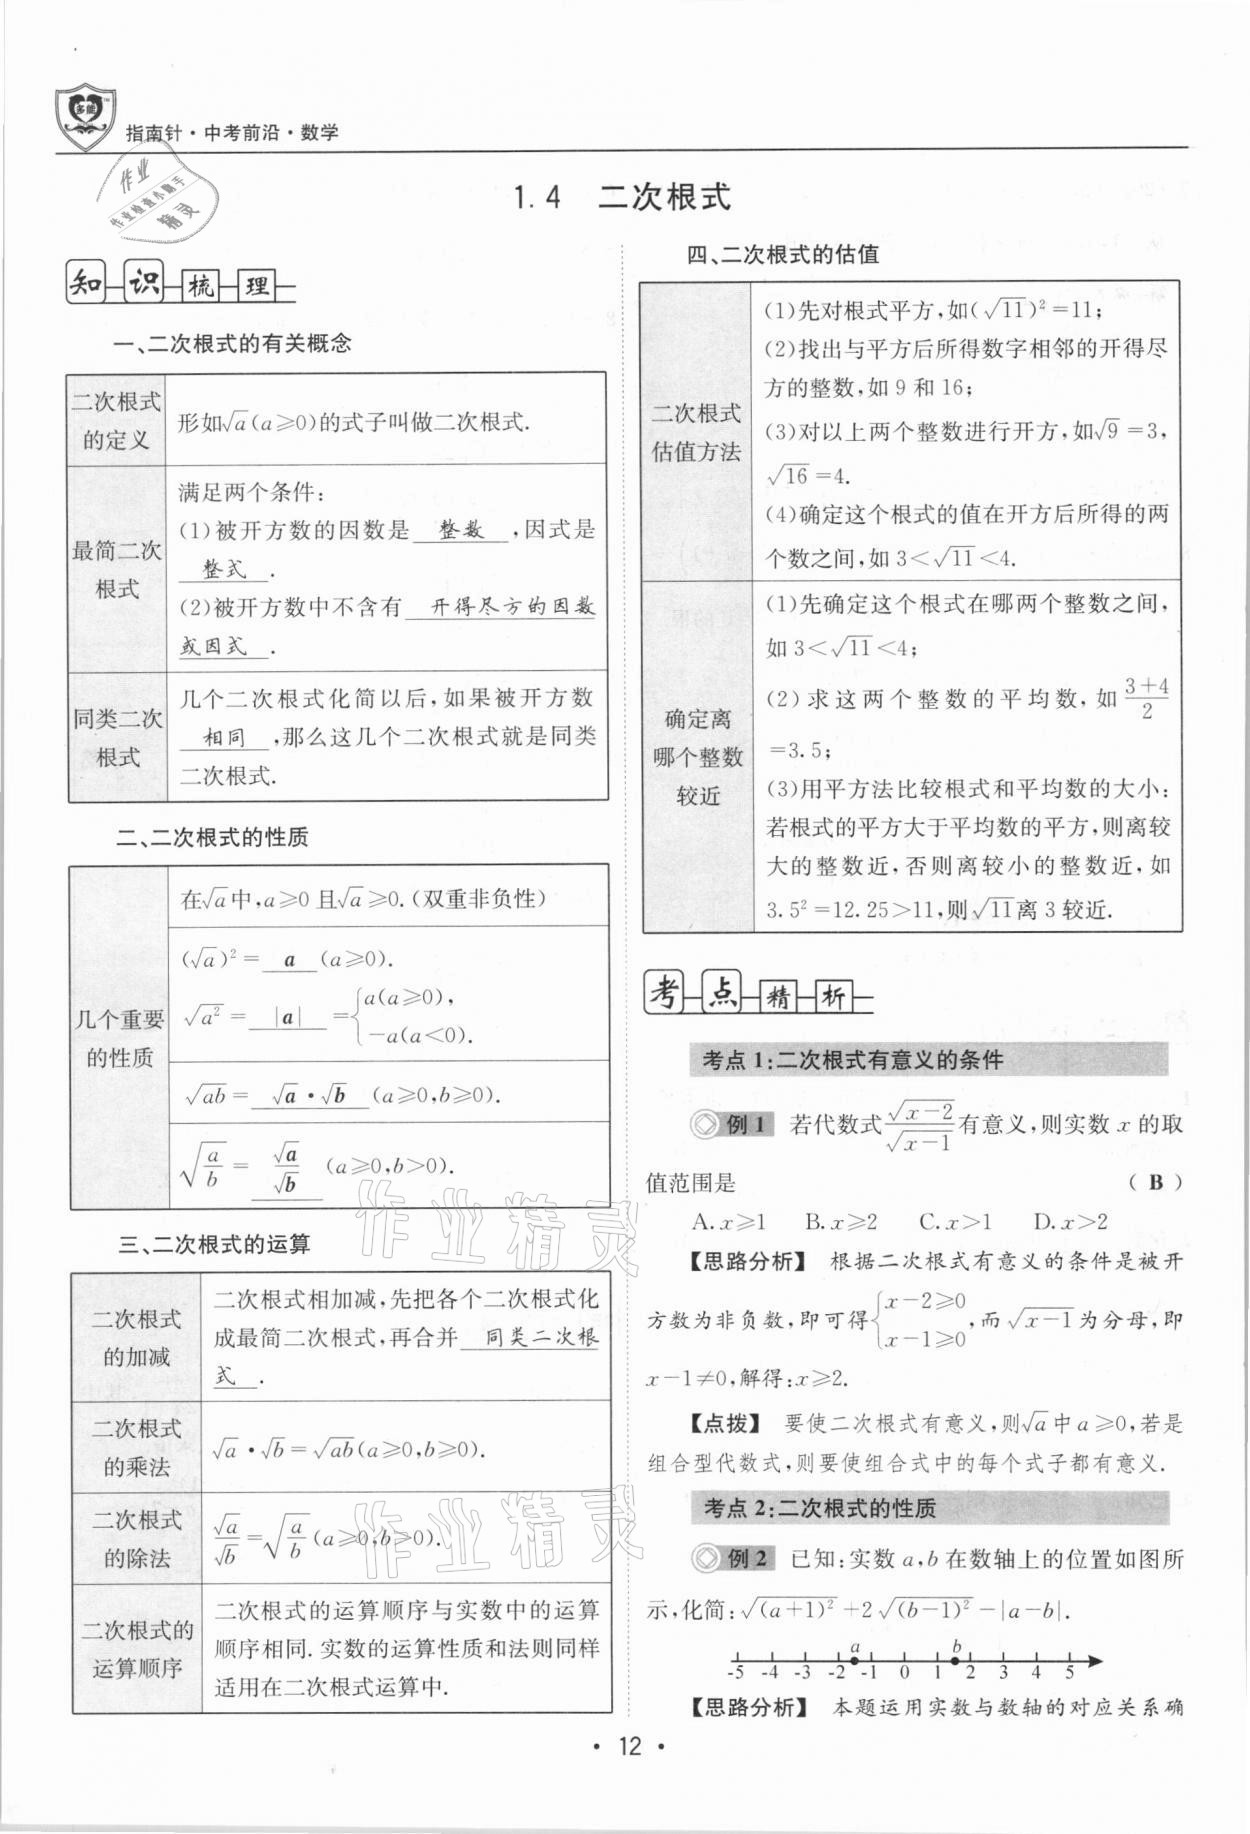 多能
指南针·中考前沿·数学
作业
作业检查小助手
精灵
1.4 二次根式
知识梳理
一、二次根式的有关概念
二次根式的定义
形如√a(a⩾0)的式子叫做二次根式.
最简二次根式
满足两个条件:
(1)被开方数的因数是 整数 ,因式是
整式 .
(2)被开方数中不含有 开得尽方的因数
或因式 .
同类二次根式
几个二次根式化简以后,如果被开方数
相同 ,那么这几个二次根式就是同类
二次根式.
二、二次根式的性质
几个重要的性质
在√a中,a⩾0且√a⩾0.(双重非负性)
(√a)²= a (a⩾0).
√a²= |a| ={a(a⩾0),
-a(a<0).
√ab= √a·√b (a⩾0,b⩾0).
√(a/b)= √a/√b (a⩾0,b>0).
三、二次根式的运算
二次根式的加减
二次根式相加减,先把各个二次根式化
成最简二次根式,再合并 同类二次根
式 .
二次根式的乘法
√a·√b=√ab(a⩾0,b⩾0).
二次根式的除法
√a/√b=√(a/b)(a⩾0,b>0).
二次根式的运算顺序
二次根式的运算顺序与实数中的运算
顺序相同.实数的运算性质和法则同样
适用在二次根式运算中.
四、二次根式的估值
二次根式估值方法
(1)先对根式平方,如(√11)²=11;
(2)找出与平方后所得数字相邻的开得尽
方的整数,如9和16;
(3)对以上两个整数进行开方,如√9=3,
√16=4.
(4)确定这个根式的值在开方后所得的两
个数之间,如3<√11<4.
确定离哪个整数较近
(1)先确定这个根式在哪两个整数之间,
如3<√11<4;
(2)求这两个整数的平均数,如(3+4)/2
=3.5;
(3)用平方法比较根式和平均数的大小:
若根式的平方大于平均数的平方,则离较
大的整数近,否则离较小的整数近,如
3.5²=12.25>11,则√11离3较近.
考点精析
考点1:二次根式有意义的条件
例1 若代数式√(x-2)/√(x-1)有意义,则实数x的取
值范围是 ( B )
A.x⩾1 B.x⩾2 C.x>1 D.x>2
【思路分析】 根据二次根式有意义的条件是被开
方数为非负数,即可得{x-2⩾0
x-1⩾0,而√(x-1)为分母,即
x-1≠0,解得:x⩾2.
【点拨】 要使二次根式有意义,则√a中a⩾0,若是
组合型代数式,则要使组合式中的每个式子都有意义.
考点2:二次根式的性质
例2 已知:实数a,b在数轴上的位置如图所
示,化简:√(a+1)²+2√(b-1)²-|a-b|.
a b
-5 -4 -3 -2 -1 0 1 2 3 4 5
【思路分析】 本题运用实数与数轴的对应关系确
作业精灵
作业精灵
· 12 ·